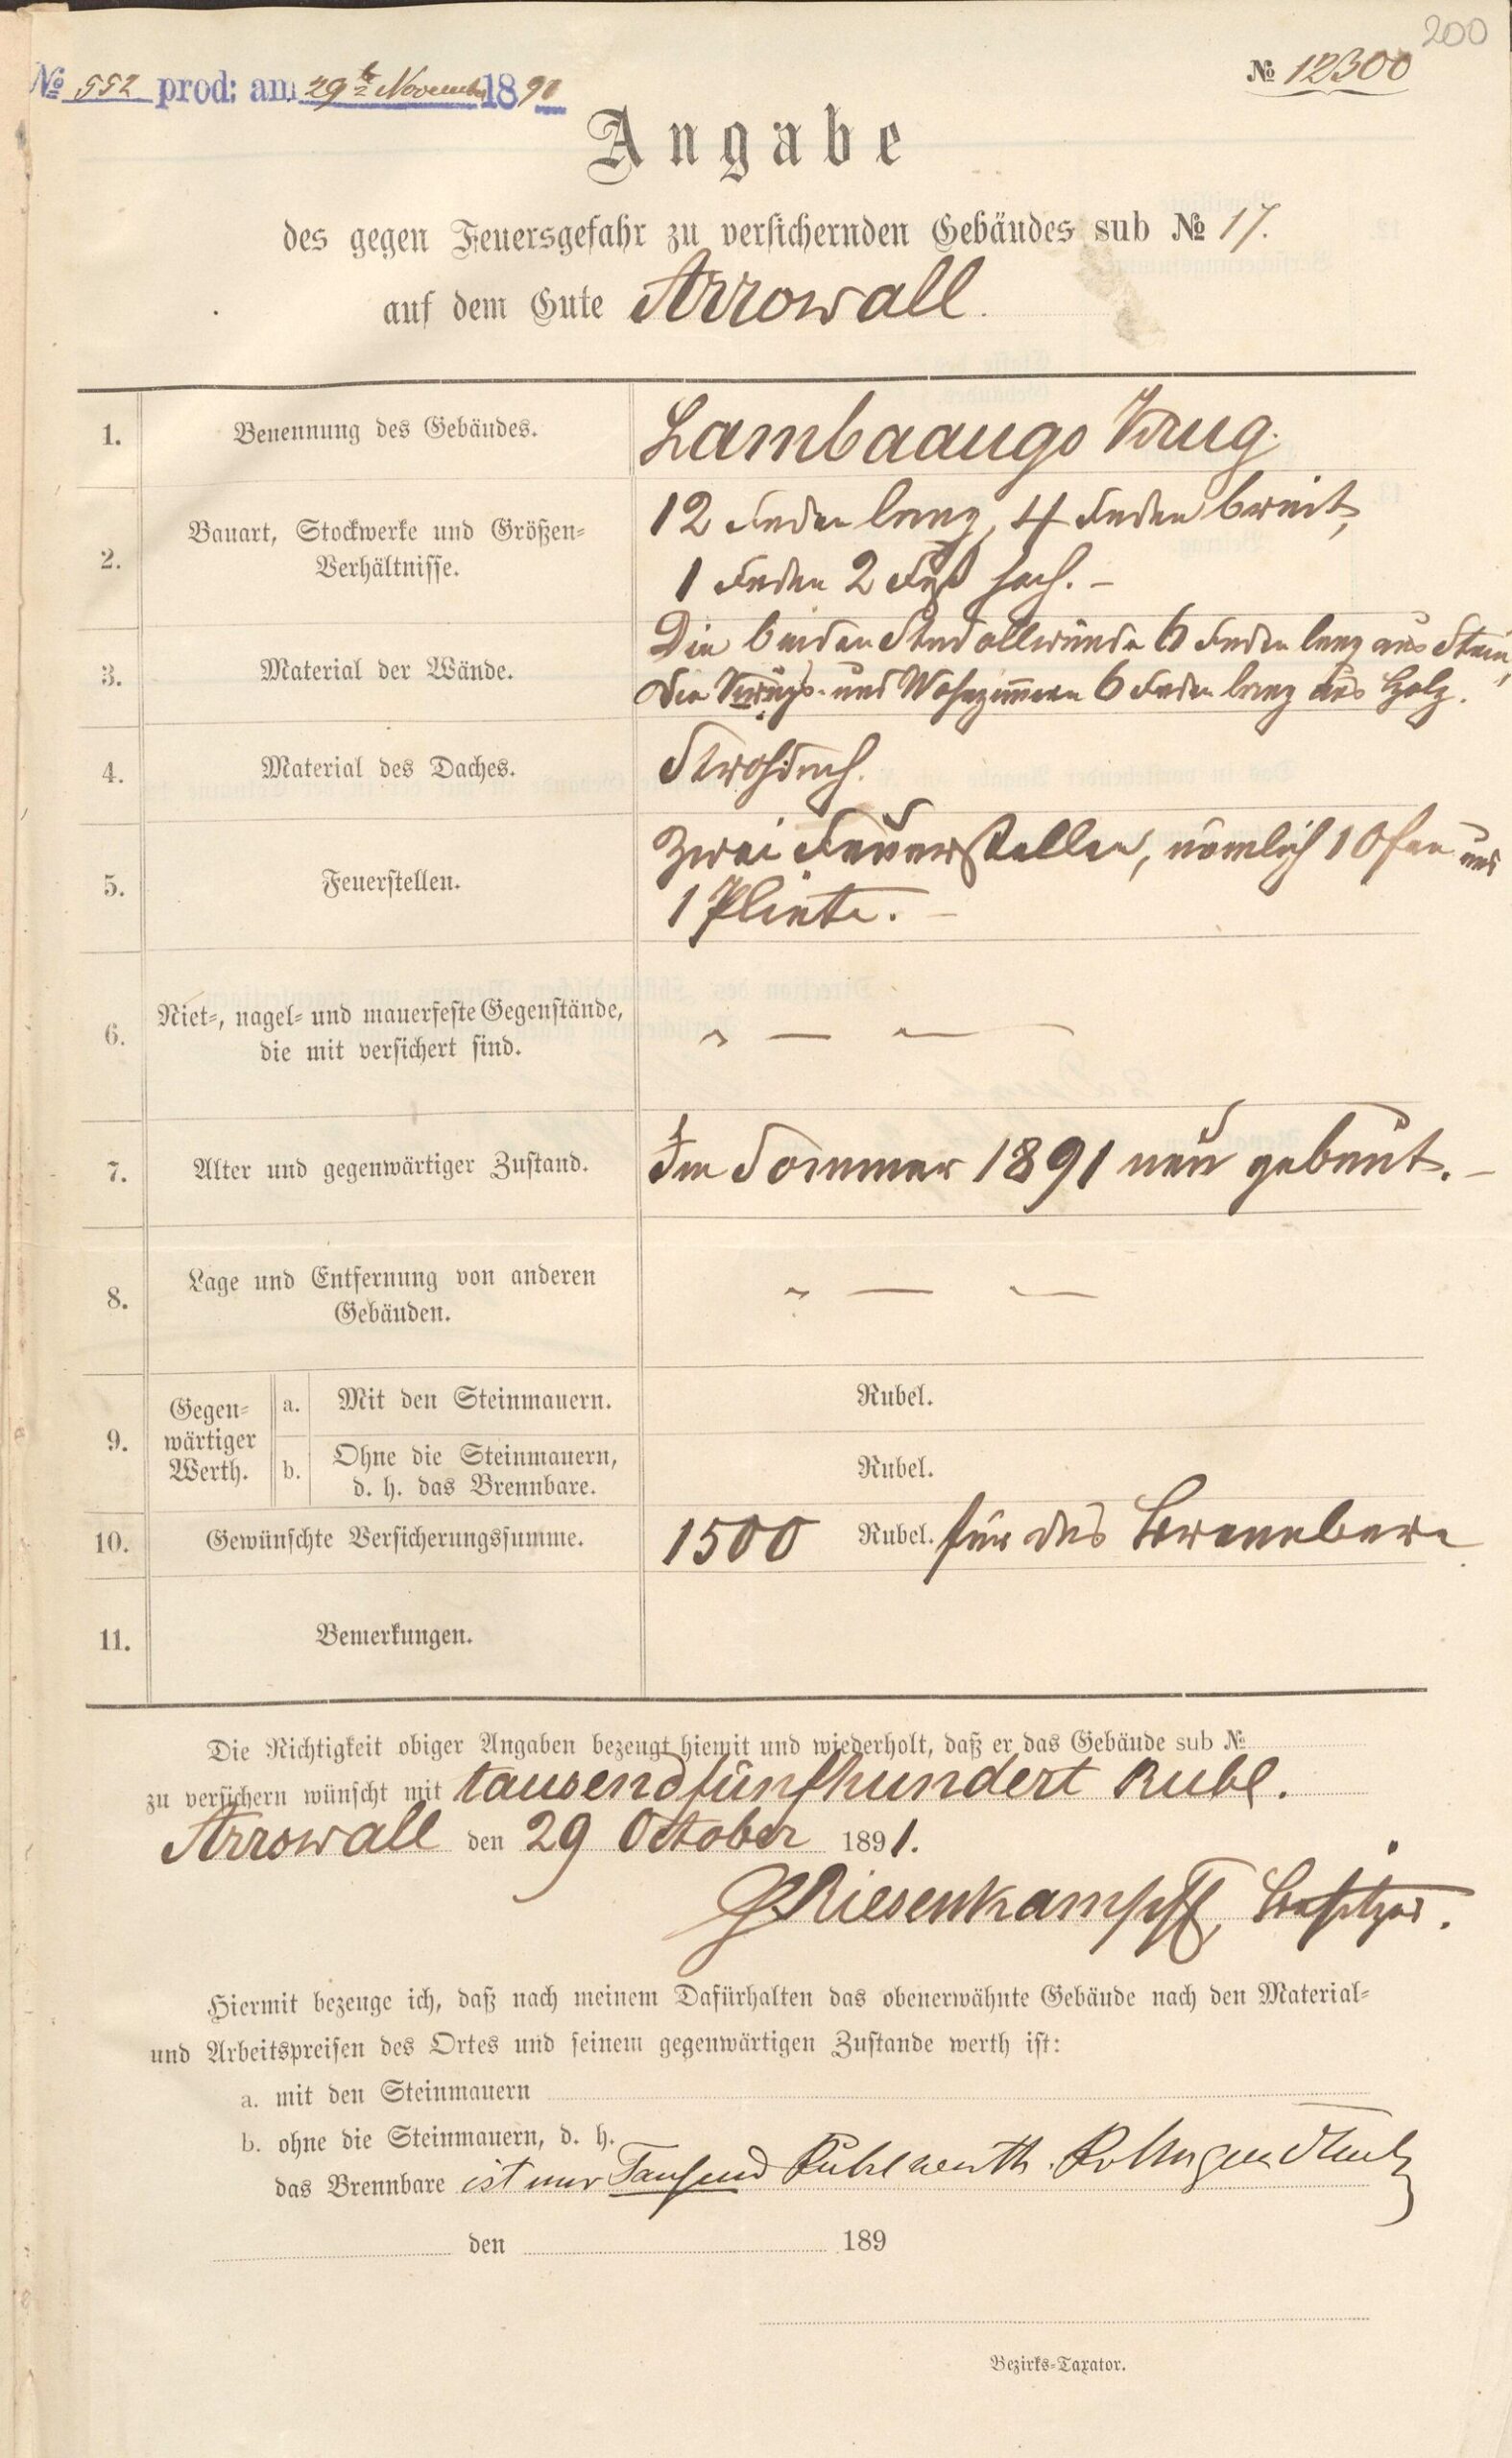 200
№ 552 prod: am 29te November 1891
№ 12300
Angabe
des gegen Feuersgefahr zu versichernden Gebäudes sub № 17.
auf dem Gute Arrowall.
1. Benennung des Gebäudes. Lambaaugo Krug.
2. Bauart, Stockwerke und Größen-
Verhältnisse.
12 Faden lang, 4 Faden breit,
1 Faden 2 Fuß hoch. –
3. Material der Wände.
Die beiden Stadollwände 6 Faden lang aus Stein,
die Krugs- und Wohnzimmern 6 Faden lang aus Holz.
4. Material des Daches. Strohdach.
5. Feuerstellen.
Zwei Feuerstellen, nämlich 1 Ofen und
1 Pliete. –
6. Niet-, nagel- und mauerfeste Gegenstände,
die mit versichert sind.
7. Alter und gegenwärtiger Zustand. Im Sommer 1891 neu gebaut. –
8. Lage und Entfernung von anderen
Gebäuden.
9. Gegen-
wärtiger
Werth.
a. Mit den Steinmauern. Rubel.
b. Ohne die Steinmauern,
d. h. das Brennbare. Rubel.
10. Gewünschte Versicherungssumme. 1500 Rubel. für das Brennbare
11. Bemerkungen.
Die Richtigkeit obiger Angaben bezeugt hiemit und wiederholt, daß er das Gebäude sub №
zu versichern wünscht mit tausendfünfhundert Rubl.
Arrowall den 29 October 1891.
G Riesenkampff, Besitzer.
Hiermit bezeuge ich, daß nach meinem Dafürhalten das obenerwähnte Gebäude nach den Material-
und Arbeitspreisen des Ortes und seinem gegenwärtigen Zustande werth ist:
a. mit den Steinmauern
b. ohne die Steinmauern, d. h.
das Brennbare ist nur Tausend Rubel werth.
den 189
Bezirks-Taxator.